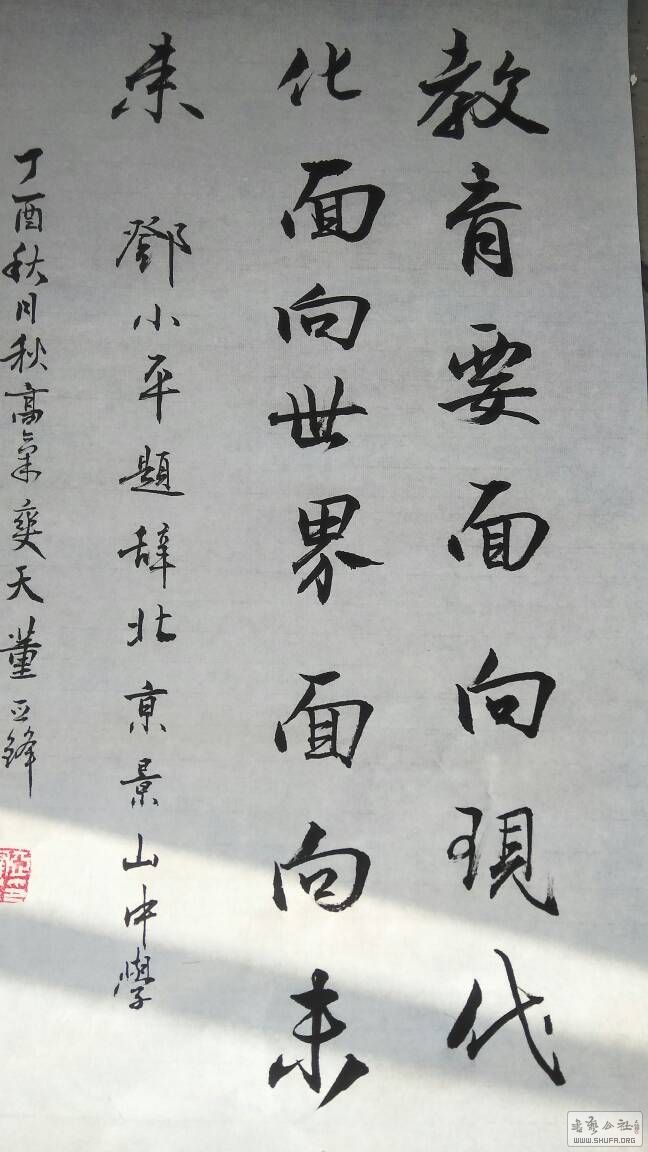 教育要面向現代
化面向世界面向未
来
鄧小平題辞北京景山中學
丁酉秋月秋高氣爽天董亚鋒
书艺公社
WWW.SHUFA.ORG